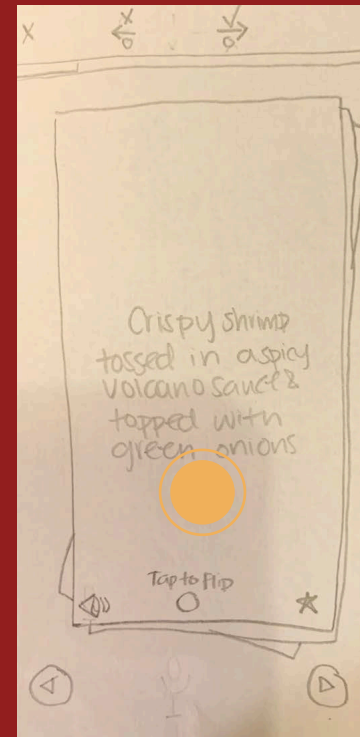 X
X
O
✓
O
Crispy shrimp
tossed in a spicy
volcano sauce &
topped with
green onions
Tap to Flip